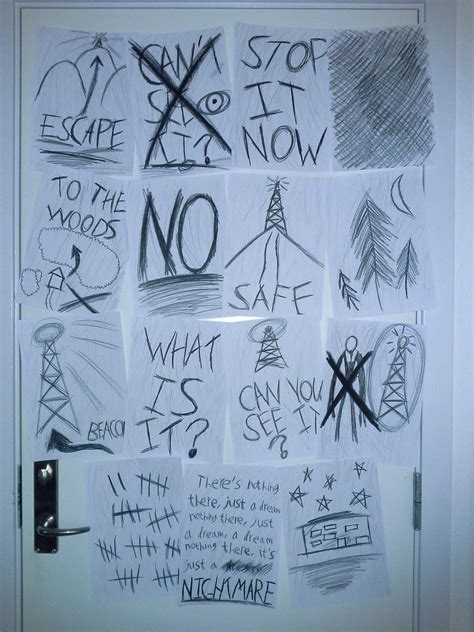 ESCAPE
CAN'T
SEE
IT?
STOP
IT
NOW
TO THE
WOODS
NO
SAFE
BEACON
WHAT
IS
IT?
CAN YOU
SEE IT
?
There's nothing
there, just a dream
nothing there, just
a dream, a dream
nothing there, it's
just a
NIGHTMARE